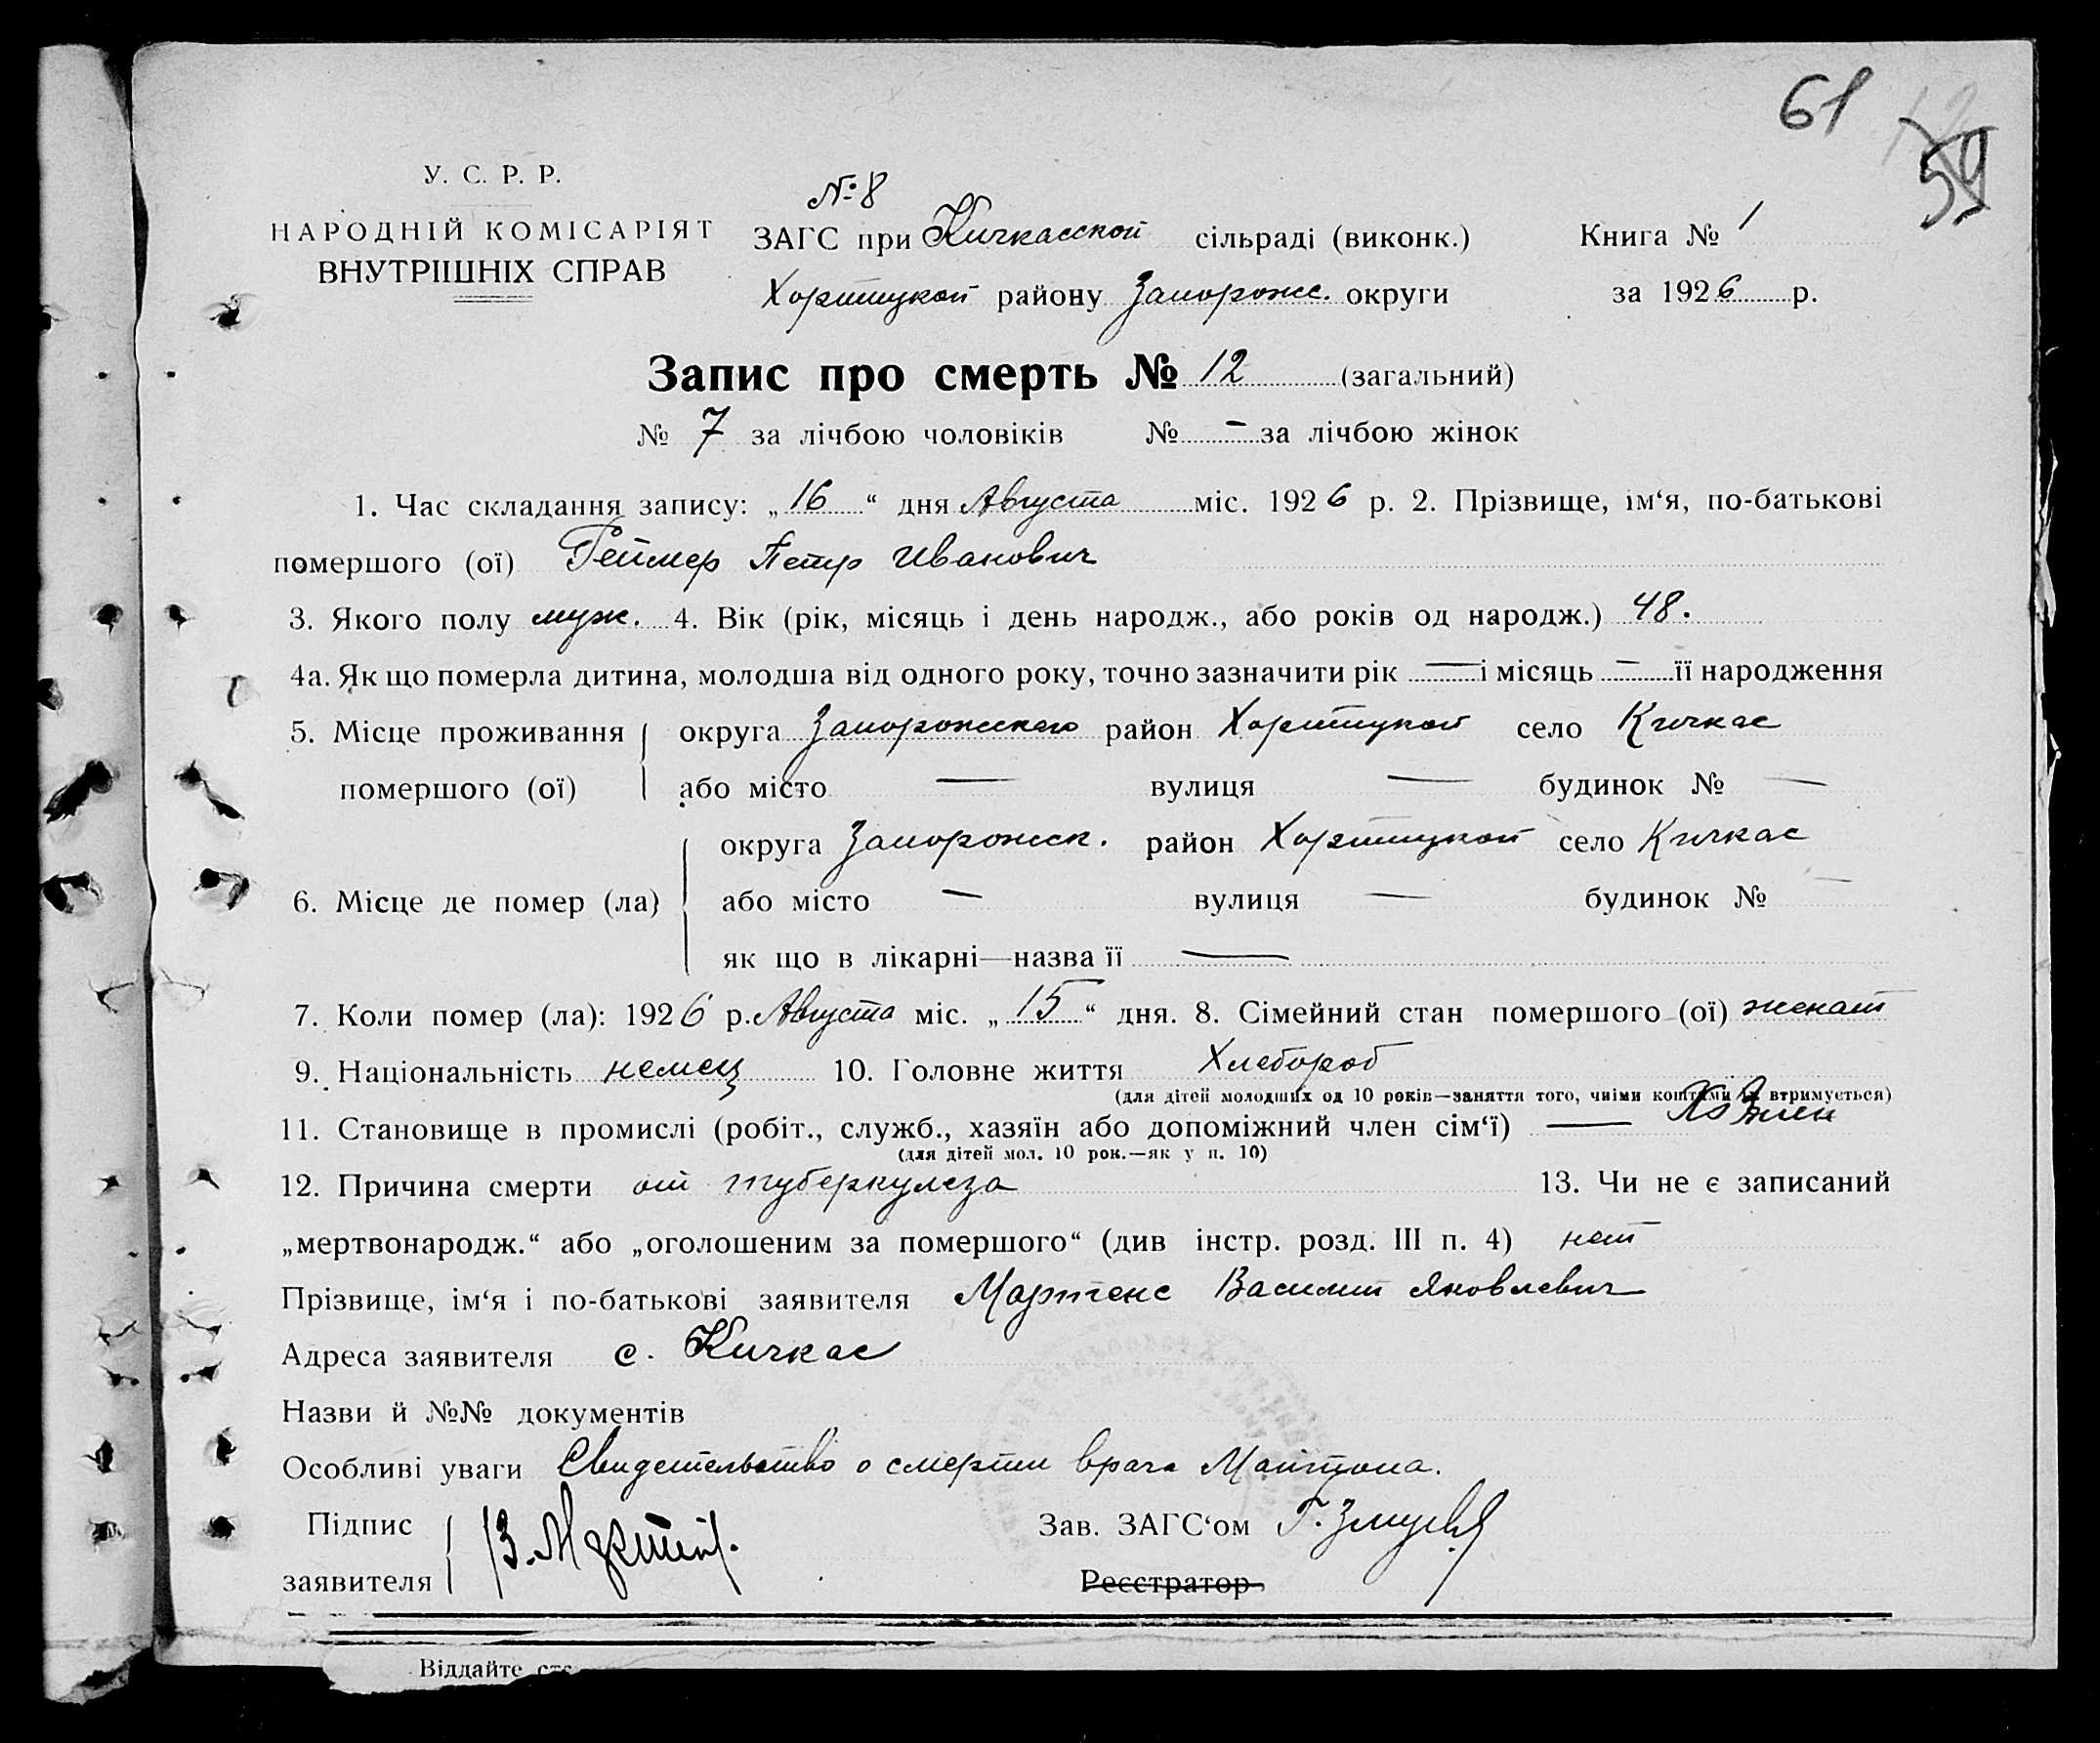 61 59
У. С. Р. Р.
НАРОДНІЙ КОМІСАРІЯТ
ВНУТРІШНІХ СПРАВ
№ 8
ЗАГС при Кичкасской сільраді (виконк.) Книга № 1
Хортицкой району Запорожс. округи за 1926 р.
Запис про смерть № 12 (загальний)
№ 7 за лічбою чоловіків № - за лічбою жінок
1. Час складання запису: „16“ дня Августа міс. 1926 р. 2. Прізвище, ім‘я, по-батькові
помершого (ої) Геймер Петр Иванович
3. Якого полу муж. 4. Вік (рік, місяць і день народж., або років од народж.) 48.
4а. Як що померла дитина, молодша від одного року, точно зазначити рік — і місяць — її народження
5. Місце проживання округа Запорожского район Хортицкой село Кичкас
помершого (ої) або місто — вулиця — будинок № —
округа Запорожск. район Хортицкой село Кичкас
6. Місце де помер (ла) або місто — вулиця — будинок № —
як що в лікарні—назва її —
7. Коли помер (ла): 1926 р. Августа міс. „15“ дня. 8. Сімейний стан помершого (ої) женат
9. Національність немец 10. Головне життя Хлебороб
(для дітей молодших од 10 років—заняття того, чиїми коштами їх втримується)
11. Становище в промислі (робіт., служб., хазяїн або допоміжний член сім‘ї) —
(для дітей мол. 10 рок.—як у п. 10)
12. Причина смерти от туберкулеза 13. Чи не є записаний
„мертвонародж.“ або „оголошеним за помершого“ (див інстр. розд. III п. 4) нет
Прізвище, ім‘я і по-батькові заявителя Мартенс Василий Яковлевич
Адреса заявителя с. Кичкас
Назви й №№ документів
Особливі уваги Свидетельство о смерти врача
Підпис В. Мартенс. Зав. ЗАГС‘ом Г.
заявителя Реєстратор
Віддайте